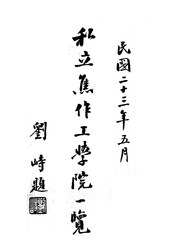 民國二十三年五月
私立焦作工學院一覽
劉峙題